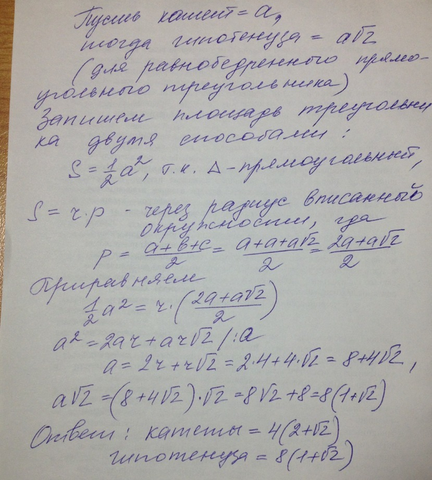 Пусть катет = a,
тогда гипотенуза = a√2
(для равнобедренного прямо-
угольного треугольника)
Запишем площадь треугольни
ка двумя способами:
S = 1/2 a², т.к. Δ-прямоугольный,
S = r.p - через радиус вписанный
окружности, где
P = (a+b+c)/2 = (a+a+a√2)/2 = (2a+a√2)/2
Приравняем
1/2 a² = r·((2a+a√2)/2)
a² = 2ar + ar√2 /:a
a = 2r + r√2 = 2·4 + 4·√2 = 8+4√2,
a√2 = (8+4√2)·√2 = 8√2+8 = 8(1+√2)
Ответ: катеты = 4(2+√2)
гипотенуза = 8(1+√2)